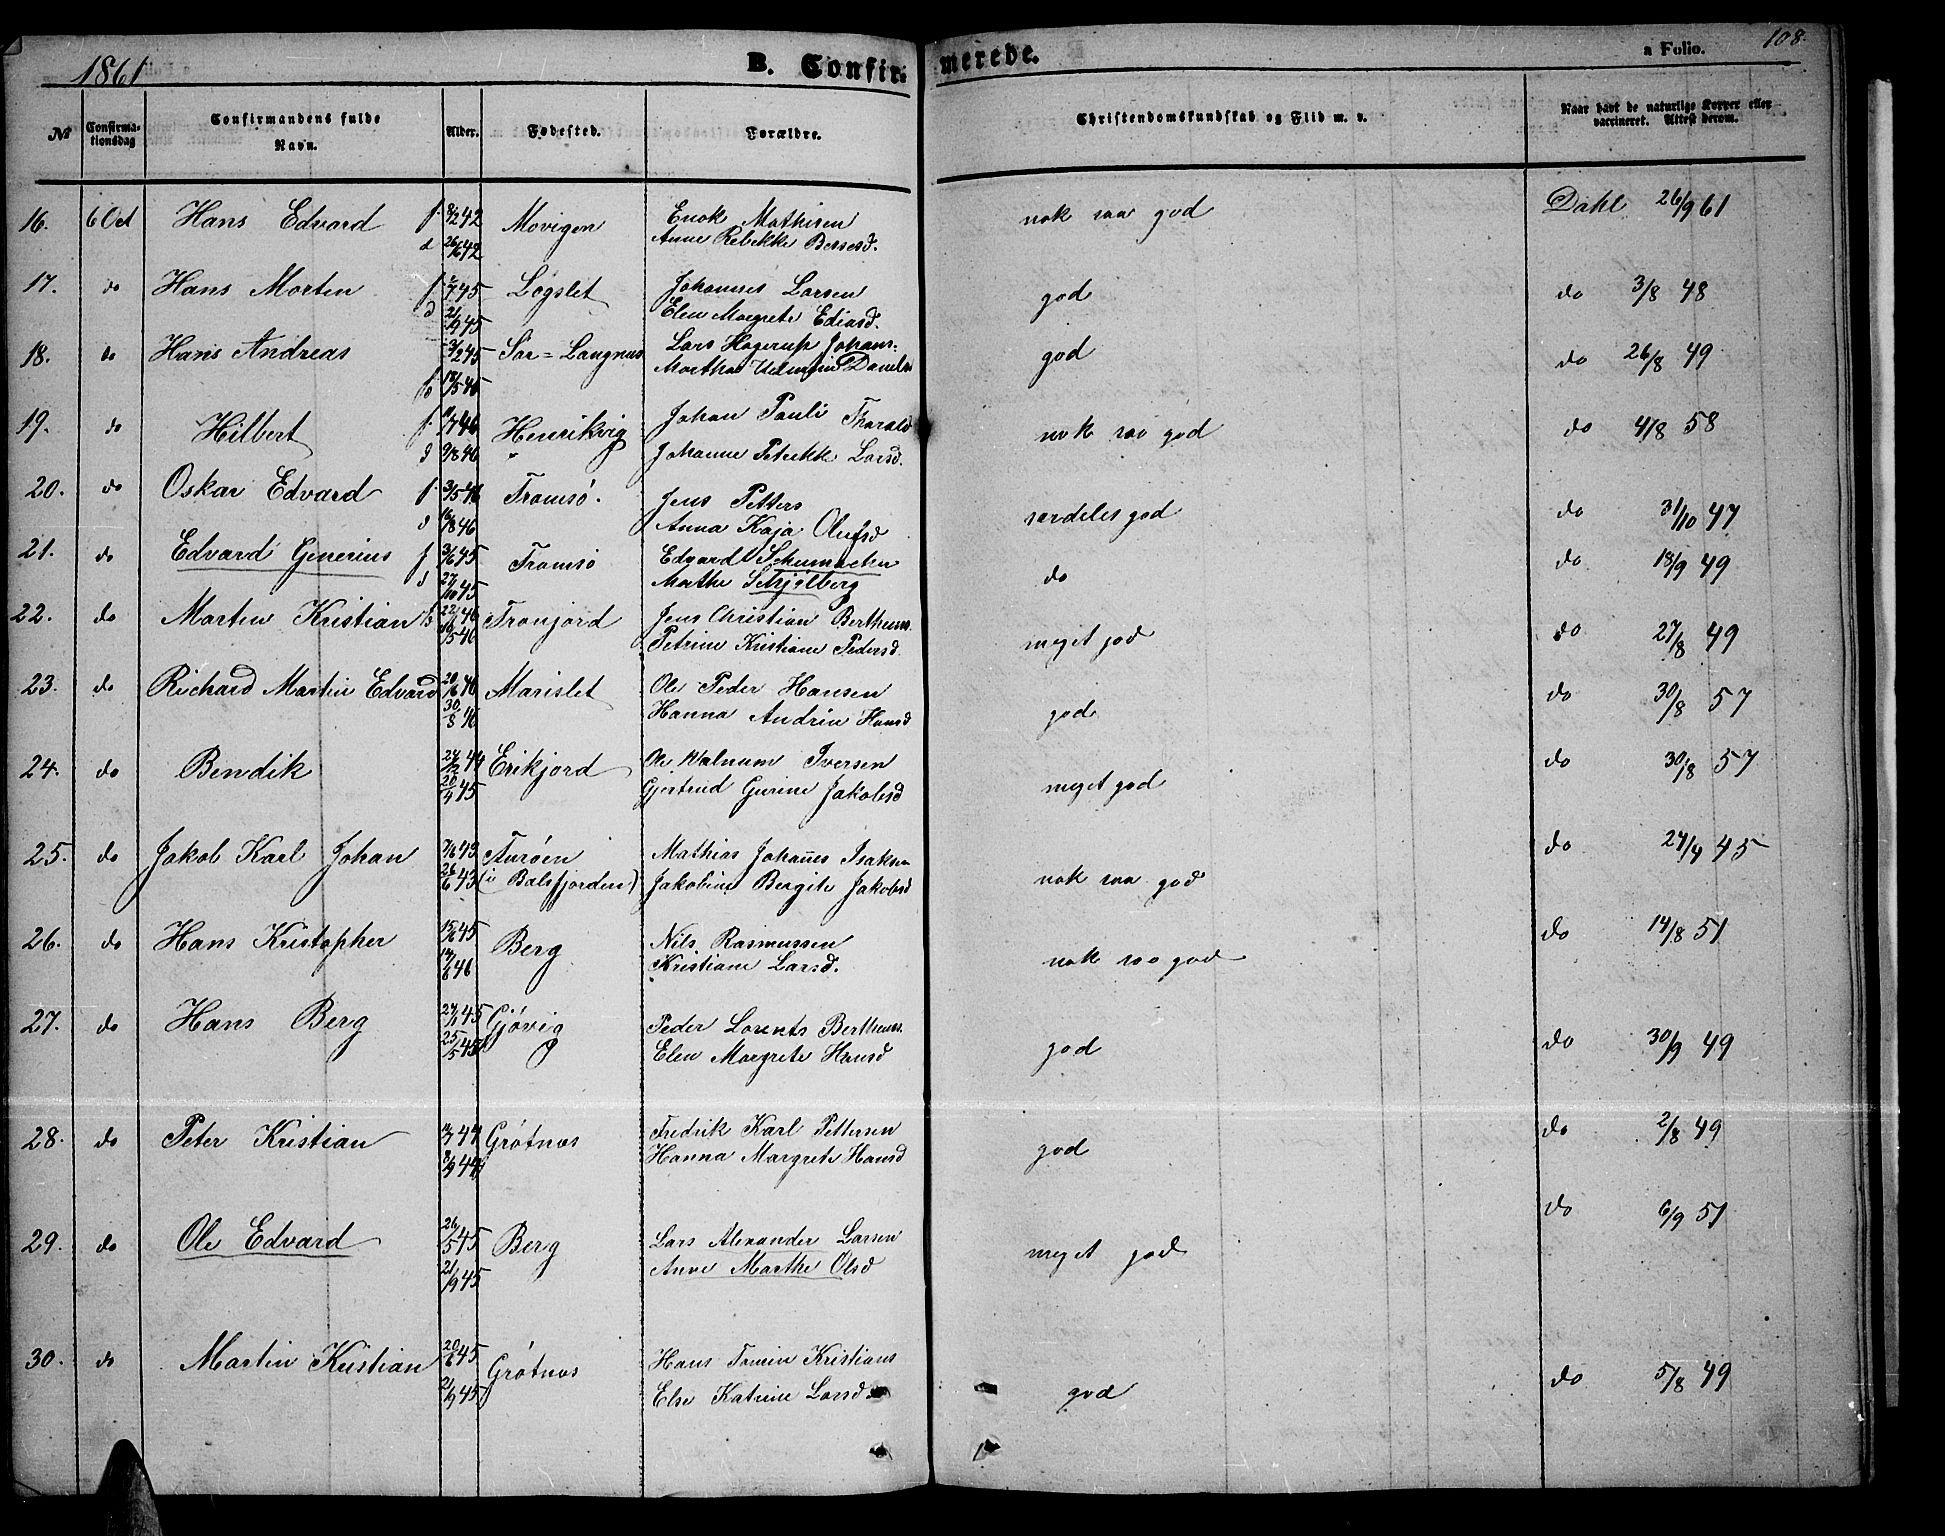 1861
B. Confirmerede.
a Folio. 108.
No Confirmationsdag Confirmandens fulde Navn. Alder. Fødested. Forældre. Christendomskundskab og Flid m. v. Naar havt de naturlige Kopper eller vaccineret. Attest derom.
16. 6 Oct Hans Edvard f. 8/2 42 Movigen Enok Mathisen nok saa god Dahl 26/9 61
d 26/6 42 Anne Rebekke Bersesd.
17. do Hans Morten f 45 Løgslet Johannes Larsen god do 3/8 48
d 21/9 45 Elen Margrete Ediasd.
18. do Hans Andreas 3/2 45 Sør=Langnes Lars Hagerup Johans: god do 26/8 49
D 18/5 45 Martha Danielsd
19. do Hilbert f. 46 Henrikvig Johan Pauli Tharald nok saa god do 4/8 58
d 9/8 46 Johanne Petrikke Larsd.
20. do Oskar Edvard f. 3/5 46 Tromsø. Jens Petters særdeles god do 31/10 47
d 16/8 46 Anna Kaja Olufsd
21. do Edvard Generius f 3/6 45 Tromsø Edvard Schumacher do do 18/9 49
d 27/10 45 Marthe Schjølberg
22. do Martin Kristian f 46 Tronjord Jens Christian Bertheus. meget god do 27/8 49
5 46 Petrine Kristiane Pedersd.
23. do Richard Martin Edvard 20/6 46 Marislet Ole Peder Hansen god do 30/8 57
30/8 46 Hanna Andrin Hansd
24. do Bendik 27/12 44 Erikjord Ole Walnum Iversen meget god do 30/8 57
20/4 45 Gjertrud Gurine Jakobsd
25. do Jakob Karl Johan 43 Turøen Mathias Johañes Isaksen nok saa god do 27/4 45
26/6 43 (i Balsfjorden) Jakobine Bergite Jakobsd
26. do Hans Kristopher 45 Berg Nils Rasmussen nok saa god do 14/8 51
46 Kristiane Larsd.
27. do Hans Berg 27/1 45 Gjøvig Peder Lorents Bertheus. god do 30/9 49
25/5 45 Elen Margrete Hansd
28. do Peter Kristian 44 Grøtnæs Fredrik Karl Pettersen god do 2/8 49
8/9 44 Hanna Margrete Hansd
29. do Ole Edvard 26/5 45 Berg Lars Alexander Larsen meget god do 6/9 51
21/9 45 Anne Marthe Olsd
30. do Martin Kristian 20/6 45 Grøtnæs Hans Tomin Kristians god do 5/8 49
21/9 45 Else Katrine Larsd.